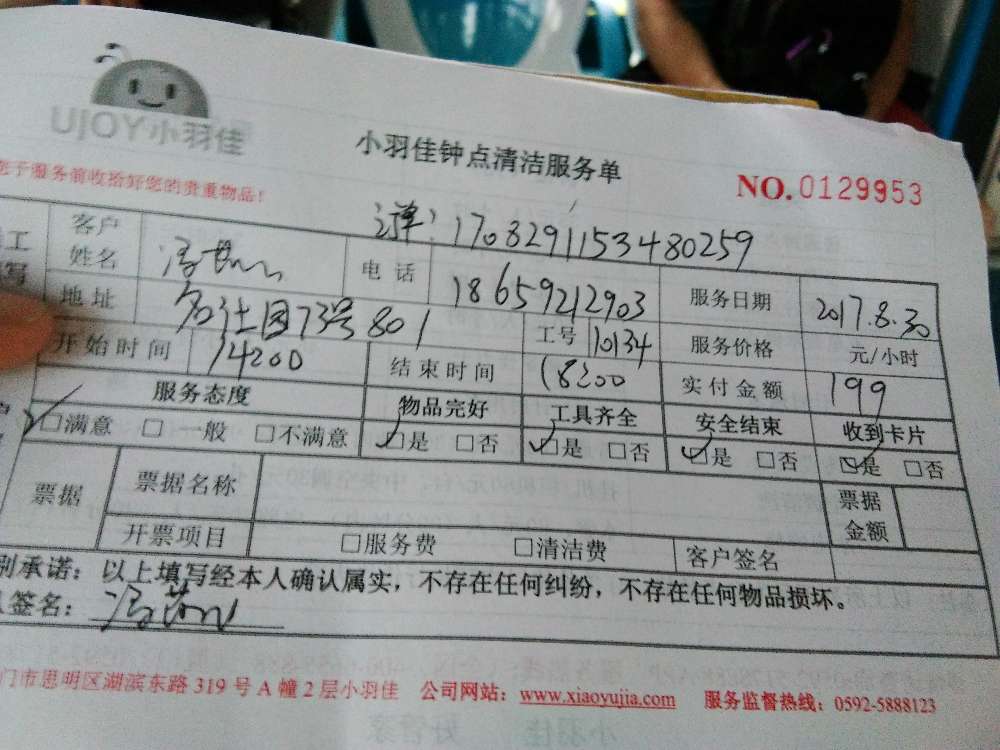 UJOY小羽佳
小羽佳钟点清洁服务单
NO.0129953
于服务前收拾好您的贵重物品!
订单:1708291153480259
客户姓名 电话 18659212903 服务日期 2017.8.30
地址 名仕园73号801 工号 10134 服务价格 元/小时
开始时间 14:00 结束时间 18:00 实付金额 199
服务态度 物品完好 工具齐全 安全结束 收到卡片
□满意 □一般 □不满意 □是 □否 □是 □否 □是 □否 □是 □否
票据 票据名称 票据金额
开票项目 □服务费 □清洁费 客户签名
别承诺:以上填写经本人确认属实,不存在任何纠纷,不存在任何物品损坏。
签名:
门市思明区湖滨东路319号A幢2层小羽佳 公司网站:www.xiaoyujia.com 服务监督热线:0592-5888123